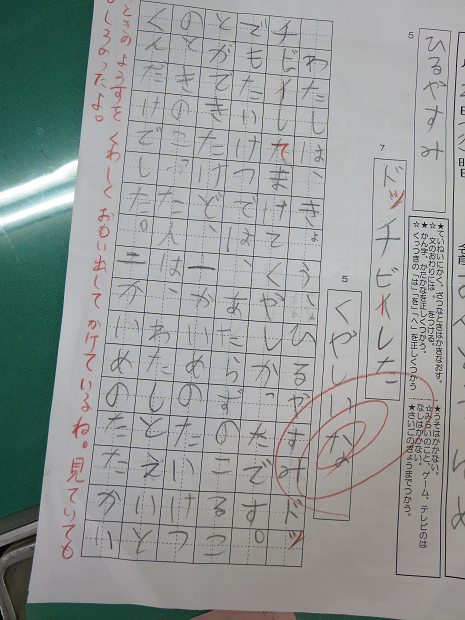 5
ひるやすみ
7
ドッチビーした
★ていねいにかく。ざつなときはかきなおす。
☆文のおわりには。をつける。
★かん字、かたかなを正しくつかう。
☆くっつきの「は」「を」「へ」を正しくつかう
★うそはかかない。
☆みらいのこと、ゲーム、テレビのは
なしはかかない。
★さいごのぎょうまでつかう。
5
くやしいな
わたしは、きょう、ひるやすみドッ
チビーしてまけてくやしかったです。
でもたいけつでは、あたらずのこるこ
とができたけど、一かいめのたいけつ
のときのこったんは、わたしとえいと
くんだけでした。二かいめのたたかい
ときのようすをくわしくおもい出してかけているね。見ていても
しろかったよ。